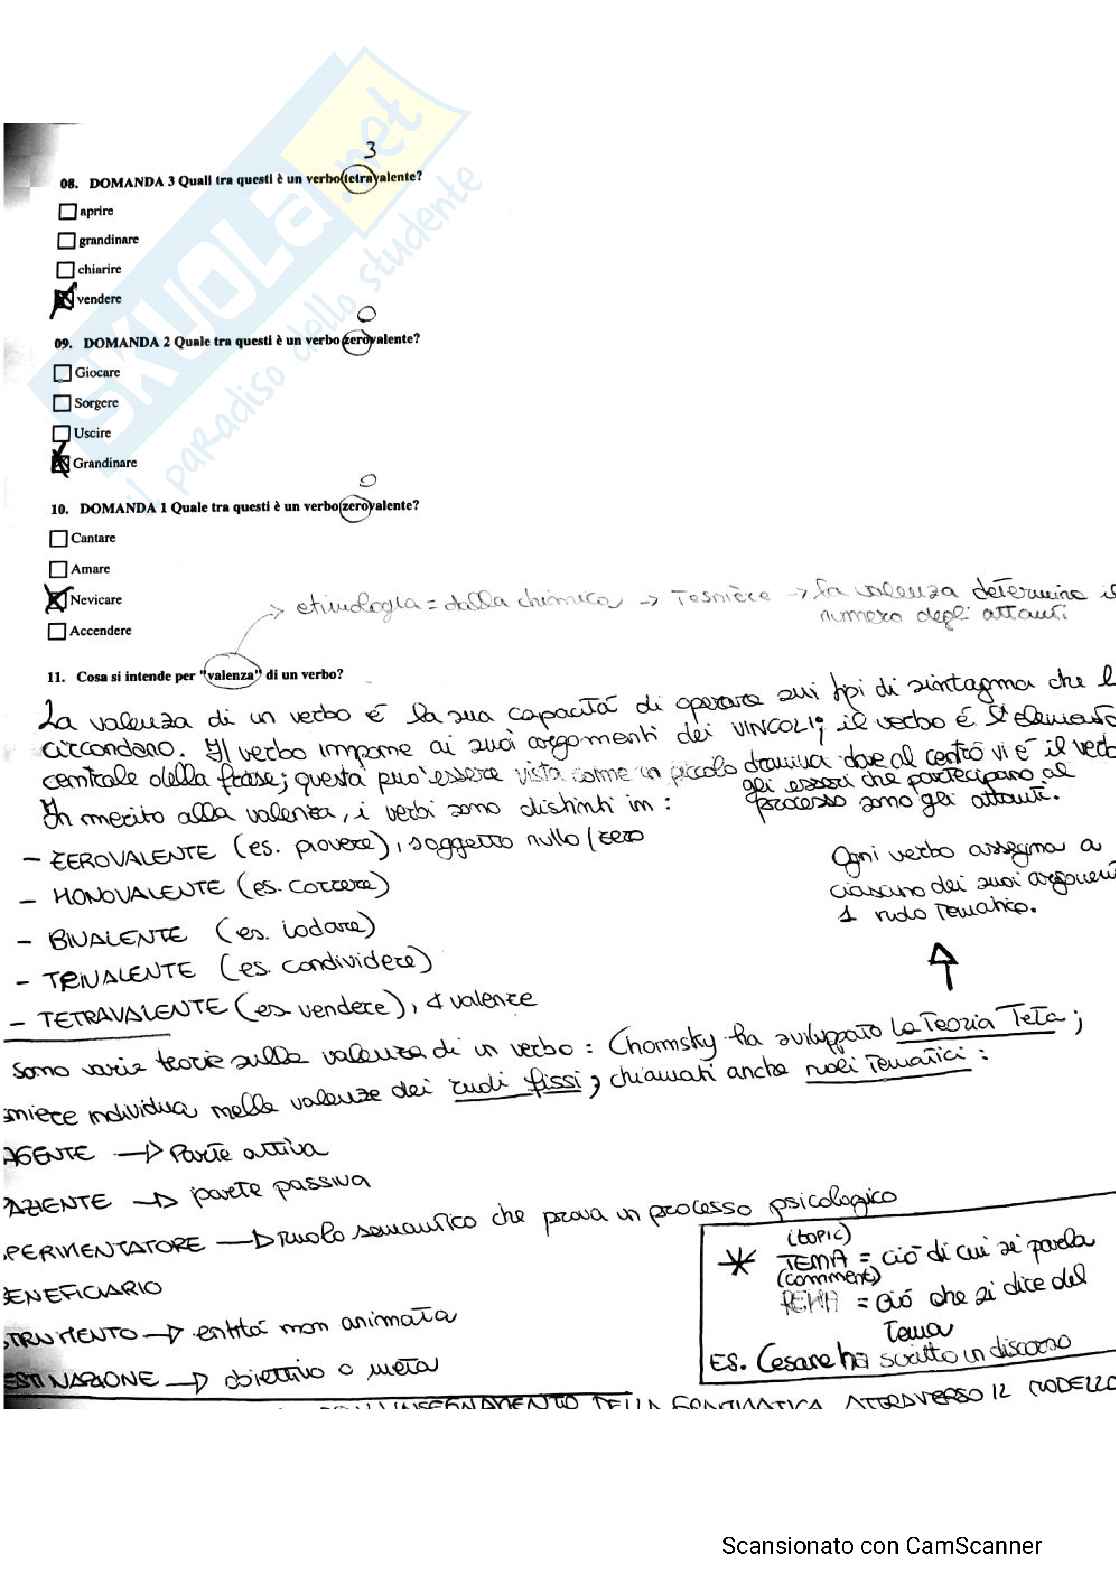 3
08. DOMANDA 3 Quali tra questi è un verbo tetravalente?
aprire
grandinare
chiarire
vendere
0
09. DOMANDA 2 Quale tra questi è un verbo zerovalente?
Giocare
Sorgere
Uscire
Grandinare
0
10. DOMANDA 1 Quale tra questi è un verbo zerovalente?
Cantare
Amare
Nevicare
Accendere
→ etimologia = dalla chimica → Tesnière → la valenza determina il
numero degli attanti
11. Cosa si intende per "valenza" di un verbo?
La valenza di un verbo é la sua capacitá di operare sui tipi di sintagma che l
circondano. Il verbo impone ai suoi argomenti dei VINCOLI; il verbo é l'elemento
centrale della frase; questa puo' essere vista come un piccolo dramma dove al centro vi é il verbo
gli esseri che partecipano al
processo sono gli attanti.
In merito alla valenza, i verbi sono distinti in:
- ZEROVALENTE (es. piovere), soggetto nullo/zero
- MONOVALENTE (es. correre)
- BIVALENTE (es. lodare)
- TRIVALENTE (es. condividere)
- TETRAVALENTE (es. vendere), 4 valenze
Ogni verbo assegna a
ciascuno dei suoi argomenti
1 ruolo Tematico.
Sono varie teorie sulla valenza di un verbo: Chomsky ha sviluppato La Teoria Teta;
smiere individua nelle valenze dei ruoli fissi, chiamati anche ruoli Tematici:
AGENTE → Parte attiva
PAZIENTE → parte passiva
SPERIMENTATORE → Ruolo semantico che prova un processo psicologico
BENEFICIARIO
STRUMENTO → entitá non animata
DESTINAZIONE → obiettivo o meta
(topic)
* TEMA = ció di cui si parla
(comment)
REMA = ció che si dice del
Tema
ES. Cesare ha scritto un discorso
INSEGNAMENTO DELLA GRAMMATICA ATTRAVERSO IL MODELLO
Scansionato con CamScanner
SKUOLA.net
il paradiso dello studente